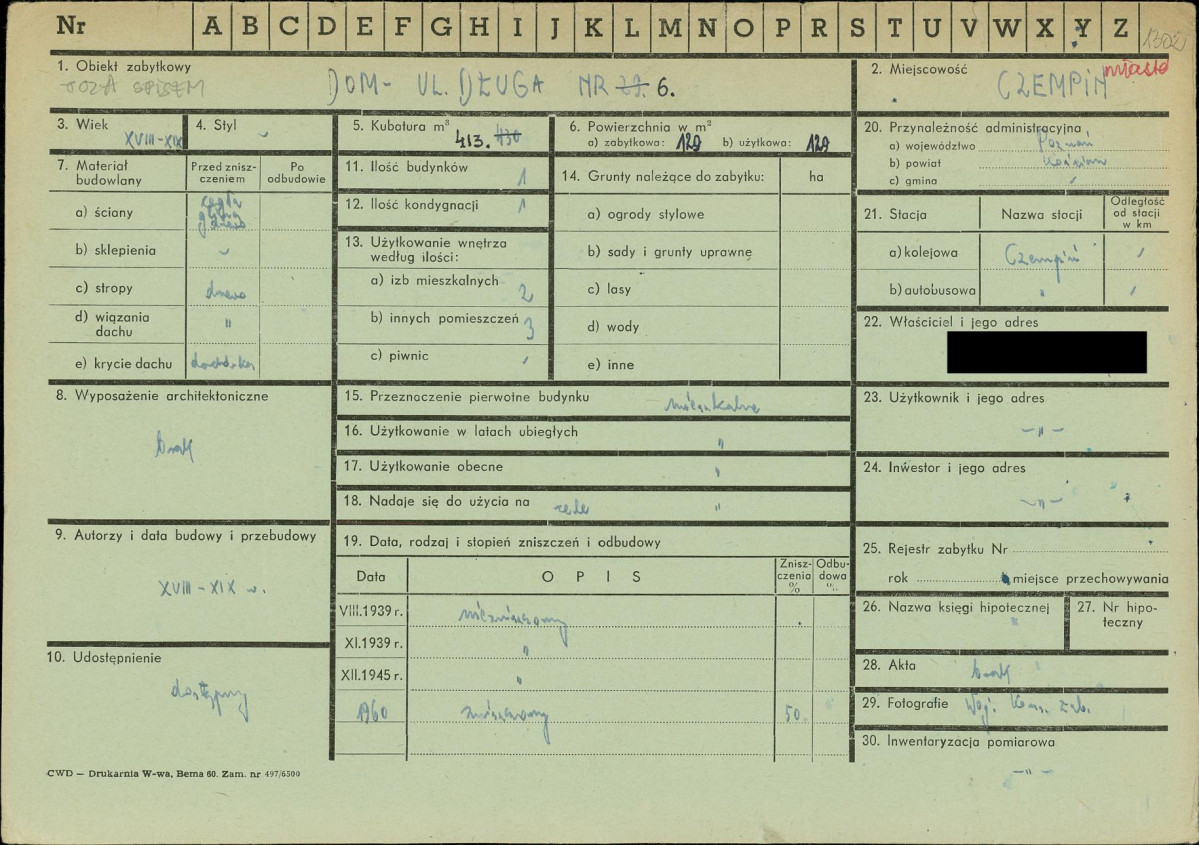 Nr A B C D E F G H I J K L M N O P R S T U V W X Y Z
1. Obiekt zabytkowy
POZA SPISEM
DOM - UL. DŁUGA NR 6.
2. Miejscowość
miasto
CZEMPIŃ
3. Wiek
XVIII-XIX
4. Styl
5. Kubatura m³
413. 430
6. Powierzchnia w m²
a) zabytkowa: 129 b) użytkowa: 129
20. Przynależność administracyjna
a) województwo Poznań
b) powiat Kościan
c) gmina
7. Materiał budowlany
Przed znisz-
czeniem
Po
odbudowie
a) ściany cegła
glina
drewno
b) sklepienia
c) stropy drewno
d) wiązania
dachu "
e) krycie dachu dachówka
11. Ilość budynków 1
12. Ilość kondygnacji 1
13. Użytkowanie wnętrza
według ilości:
a) izb mieszkalnych 2
b) innych pomieszczeń 3
c) piwnic
14. Grunty należące do zabytku: ha
a) ogrody stylowe
b) sady i grunty uprawnę
c) lasy
d) wody
e) inne
21. Stacja Nazwa stocji
Odległość
od stacji
w km
a) kolejowa Czempiń
b) autobusowa "
22. Właściciel i jego adres
8. Wyposażenie architektoniczne
brak
15. Przeznaczenie pierwotne budynku mieszkalne
16. Użytkowanie w latach ubiegłych "
17. Użytkowanie obecne "
18. Nadaje się do użycia na cele "
23. Użytkownik i jego adres
-"-
24. Inwestor i jego adres
-"-
9. Autorzy i data budowy i przebudowy
XVIII - XIX w.
19. Data, rodzaj i stopień zniszczeń i odbudowy
Data O P I S
Znisz-
czenia
%
Odbu-
dowa
%
VIII.1939 r. niezniszczony
XI.1939 r. "
XII.1945 r. "
1960 zniszczony 50
25. Rejestr zabytku Nr
rok miejsce przechowywania
26. Nazwa księgi hipotecznej
27. Nr hipo-
teczny
10. Udostępnienie
dostępny
28. Akta brak
29. Fotografie Woj. Kons. Zab.
30. Inwentaryzacja pomiarowa
-"-
CWD — Drukarnia W-wa, Bema 60. Zam. nr 497/6500